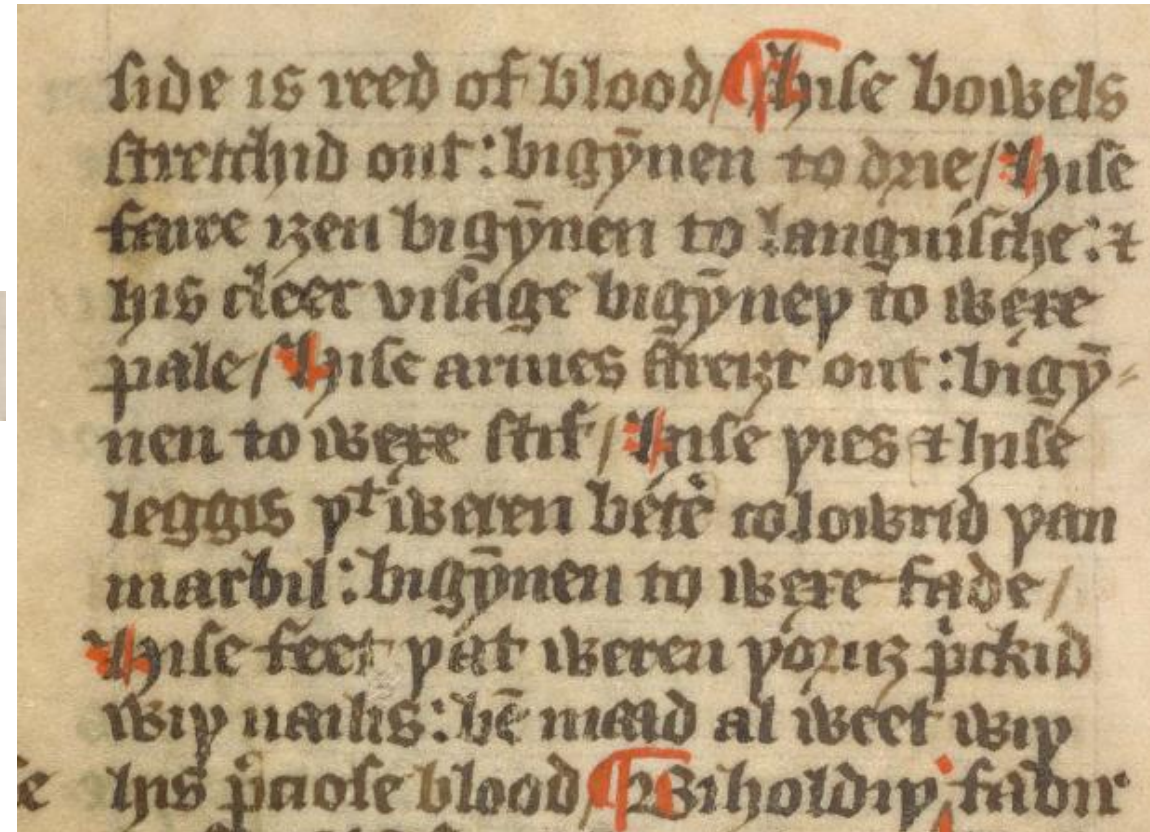 side is reed of blood/ ¶ Hise bowels
stretchid out: bigȳnen to drie/ Hise
faire iȝen bigȳnen to languische: ⁊
his cleer visage bigȳneþ to wexe
pale/ Hise armes streiȝt out: bigȳ-
nen to wexe stif/ Hise þies ⁊ hise
leggis þᵗ weren beteͬ colowrid þan
marbil: bigȳnen to wexe fade/
Hise feet þat weren þoruȝ pͥckid
wiþ nailis: bē maad al weet wiþ
his pͥciose blood/ ¶ Biholdiþ fadir